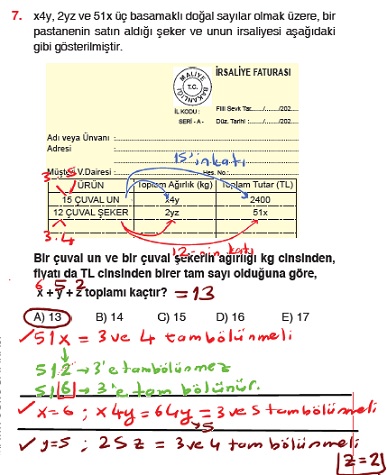 7. x4y, 2yz ve 51x üç basamaklı doğal sayılar olmak üzere, bir
pastanenin satın aldığı şeker ve unun irsaliyesi aşağıdaki
gibi gösterilmiştir.
MALİYE
T.C.
BAKANLIĞI
İRSALİYE FATURASI
İL KODU :
SERİ - A -
Fiili Sevk Tar...../....../202....
Düz. Tarihi :....../....../202....
Adı veya Ünvanı :
Adresi :
15'in katı
3.5
Müşteri V.Dairesi : Hes. No.:
ÜRÜN Toplam Ağırlık (kg) Toplam Tutar (TL)
15 ÇUVAL UN x4y 2400
12 ÇUVAL ŞEKER 2yz 51x
3.4
12-nin katı
Bir çuval un ve bir çuval şekerin ağırlığı kg cinsinden,
fiyatı da TL cinsinden birer tam sayı olduğuna göre,
6 5 2
x + y + z toplamı kaçtır? = 13
A) 13 B) 14 C) 15 D) 16 E) 17
✓51x = 3 ve 4 tam bölünmeli
512 → 3'e tam bölünmez
516 → 3'e tam bölünür.
✓x=6 ; x4y = 64y = 3 ve 5 tam bölünmeli
5
✓y=5 ; 25z = 3 ve 4 tam bölünmeli
z=2